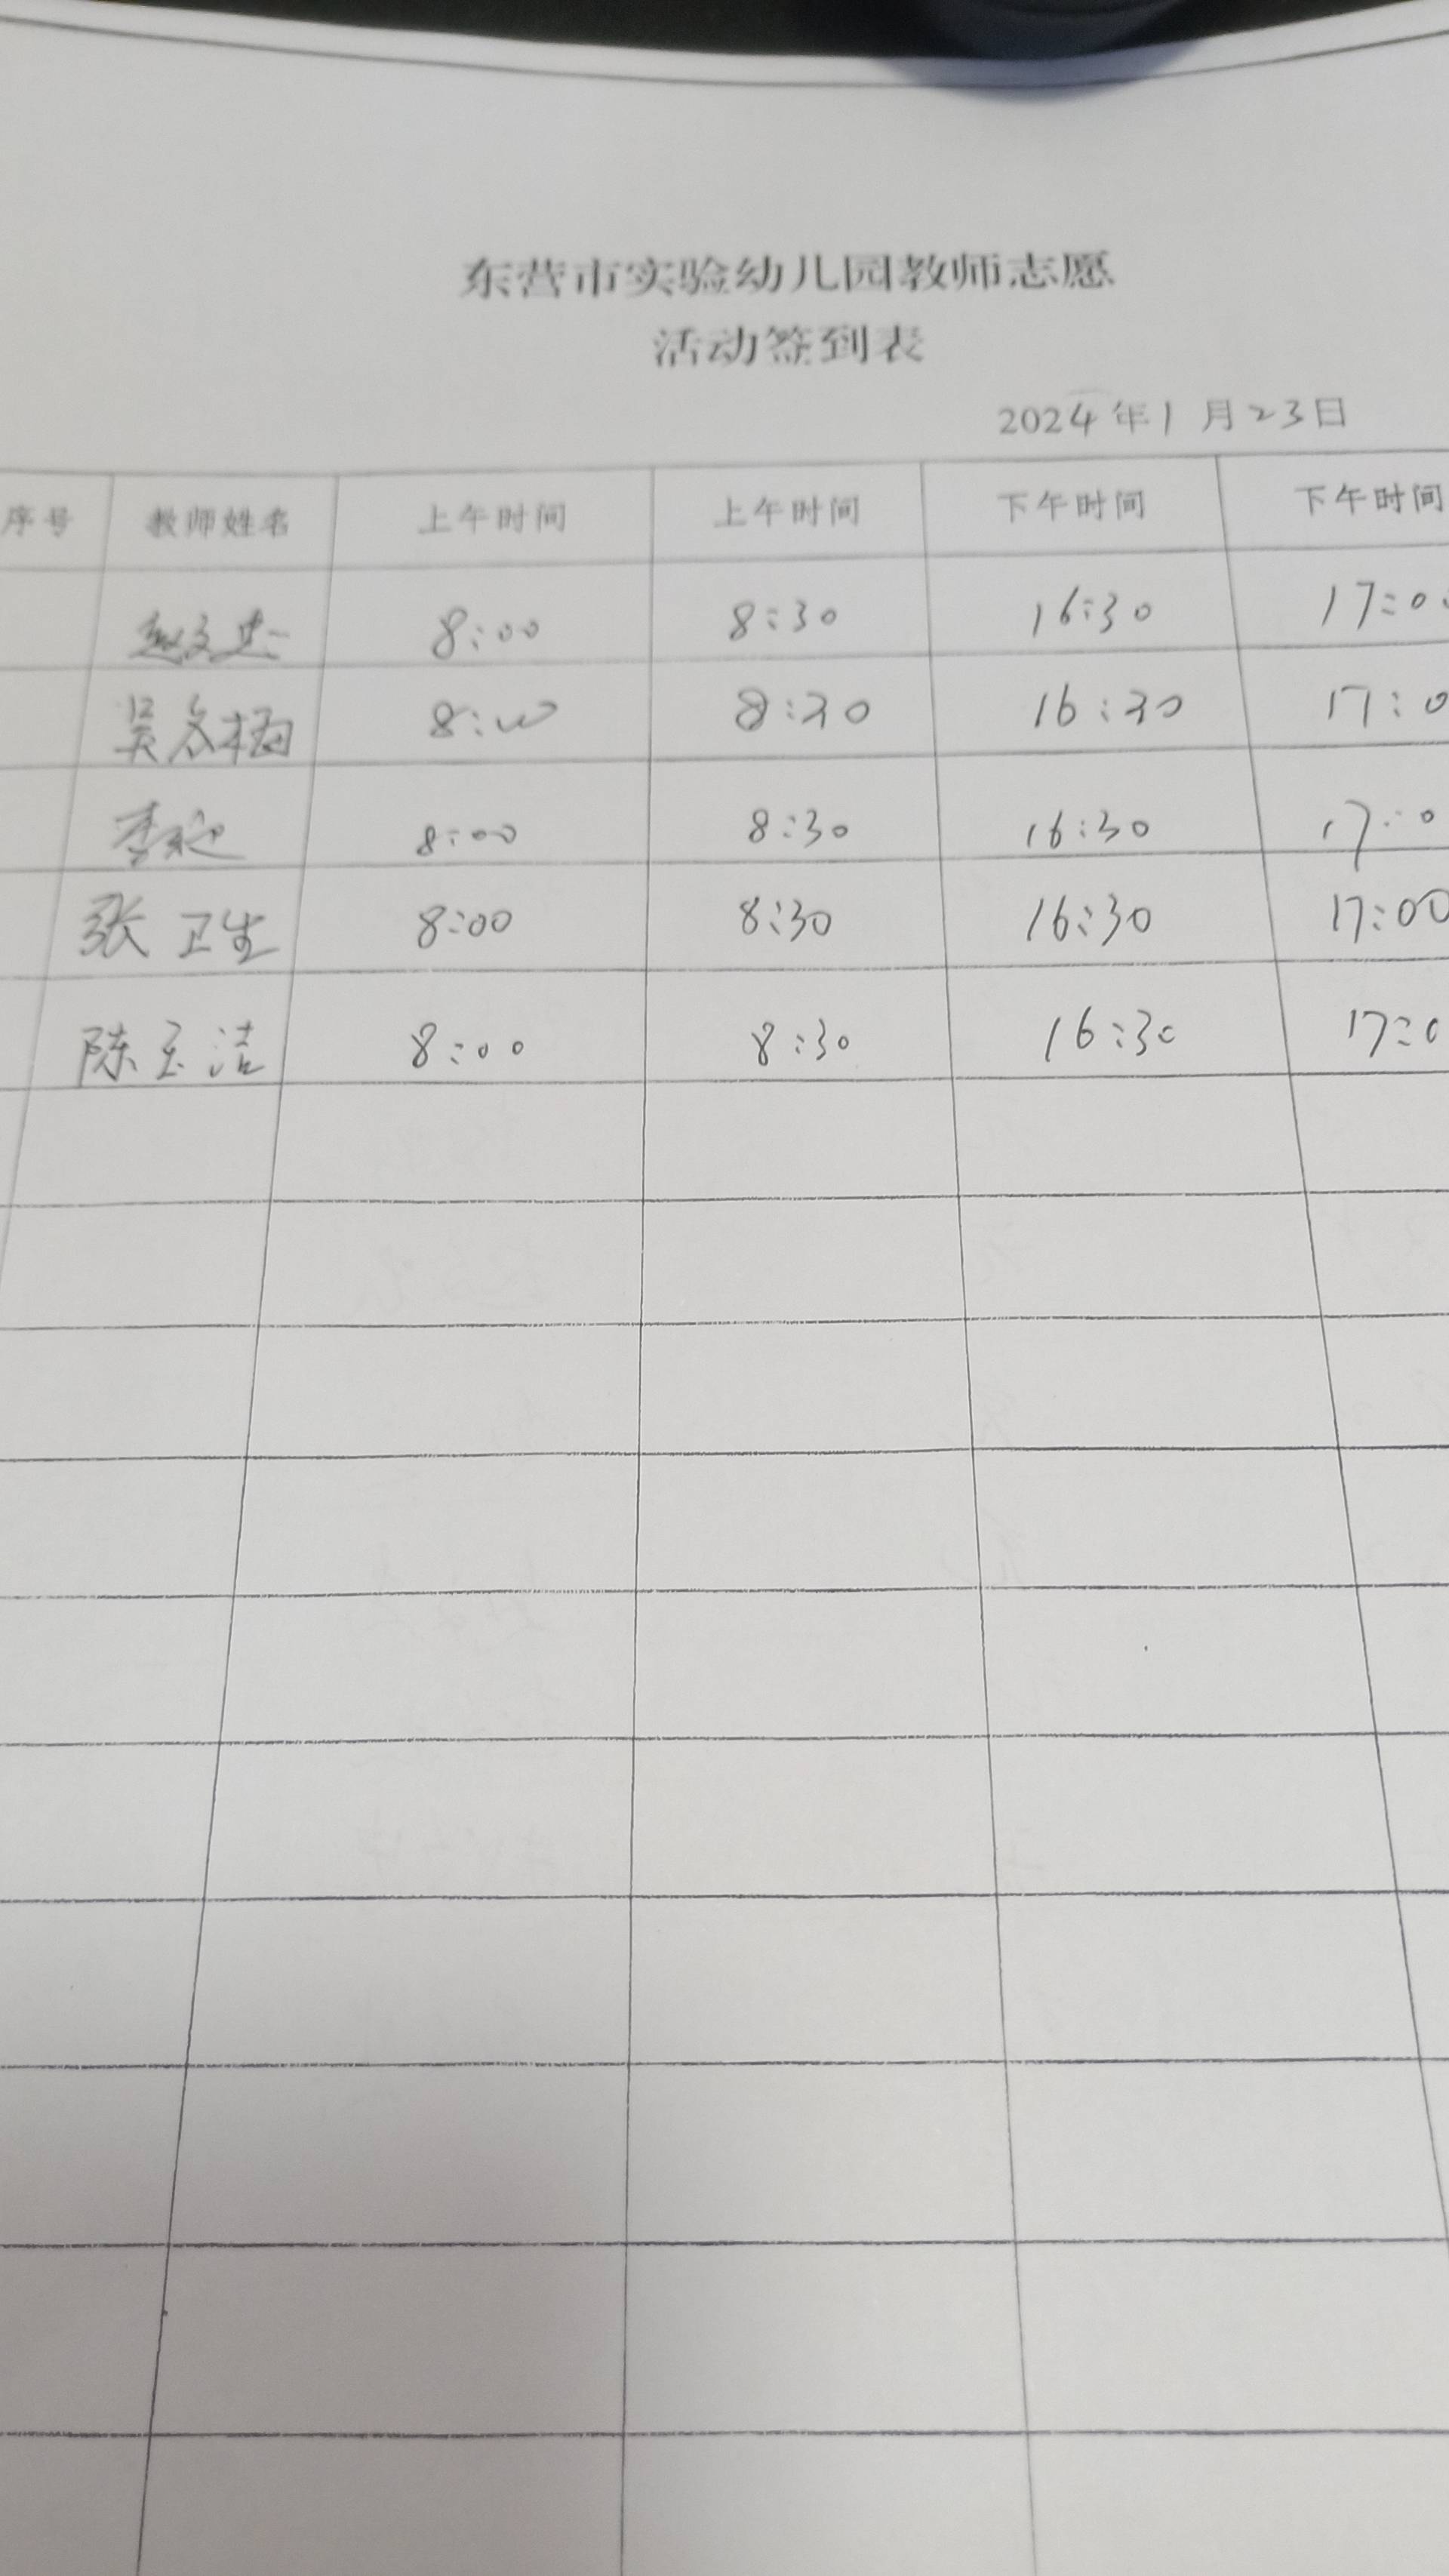 东营市实验幼儿园教师志愿
活动签到表
2024年1月23日
序号 教师姓名 上午时间 上午时间 下午时间 下午时间
8:00 8:30 16:30 17:0
吴冬梅 8:00 8:30 16:30 17:0
李 8:00 8:30 16:30 17:0
张卫生 8:00 8:30 16:30 17:00
陈玉洁 8:00 8:30 16:30 17:0